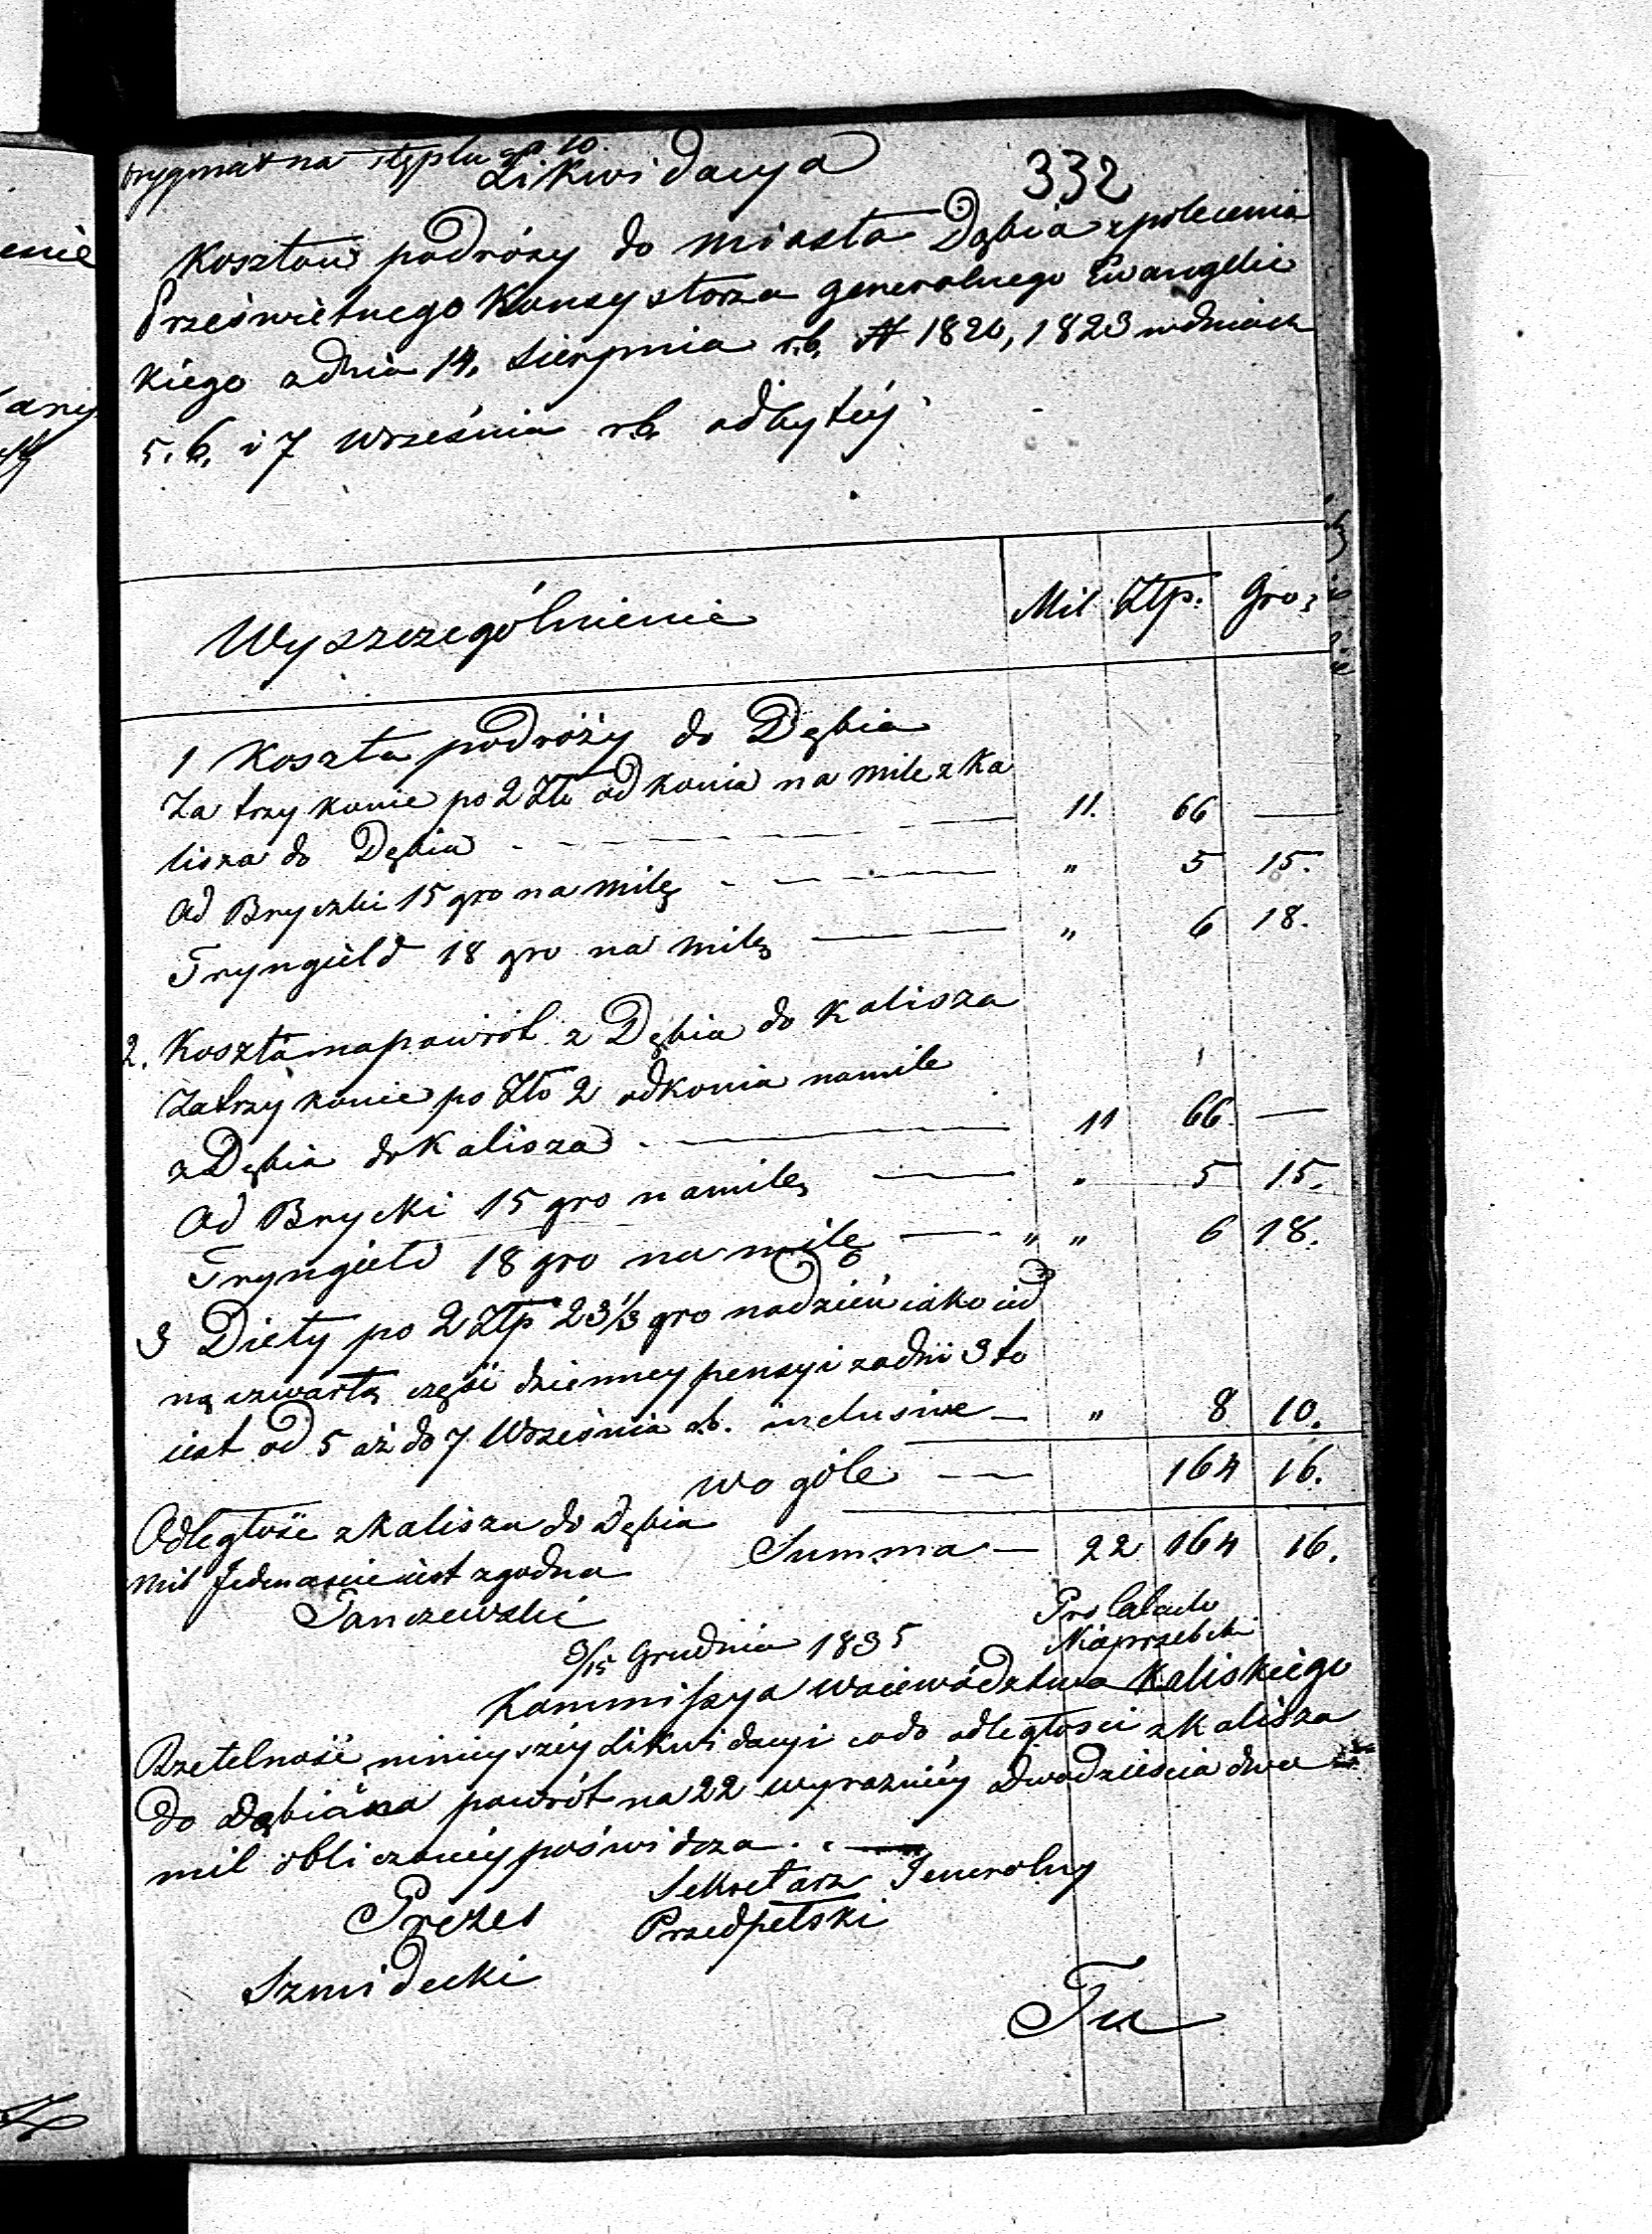 Orygynał na stęplu gr 10.
Likwidacya
332
Kosztów podróży do miasta Dąbia z polecenia
Prześwietnego Konsystorza generalnego Ewangelic
kiego z dnia 14. Sierpnia r.b. N 1820, 1823 w dniach
5. 6. i 7 września r.b. odbytéy
Wyszczególnienie Mil Ztp. Gro:
1 Koszta podróży do Dębia
Za trzy konie po 2 Złt od konia na milę z Ka
lisza do Dębia 11. 66 —
Od Bryczki 15 gro na milę " 5 15.
Tryngield 18 gro na milę " 6 18.
2. Koszta napowrót z Dębia do Kalisza
Za trzy konie po Złt 2 od konia na mile
z Dębia do Kalisza 11 66 —
Od Brycki 15 gro na milę " 5 15.
Tryngield 18 gro na milę " " 6 18.
3 Diety po 2 Ztp 23 1/3 gro na dzień iako ied
ną czwartą część dzienney pensyi za dni 3 to
iest od 5 aż do 7 Września r.b. inclusive " 8 10.
wogóle 164 16.
Odległość z Kalisza do Dębia
Summa 22 164 16.
Mil Jedenaście iest zgodna
Tanczewski
Pro
3/15 Grudnia 1835
Kommissya Woiewództwa Kaliskiego
Rzetelność ninieyszéy Likwidacyi co do odległości z Kalisza
do Dąbia na powrót na 22 wyraźniéy dwadzieścia dwa
mil obliczonéy poświdcza.
Sekretarz Jeneralny
Prezes
Przedpełski
Szmidecki
Tu